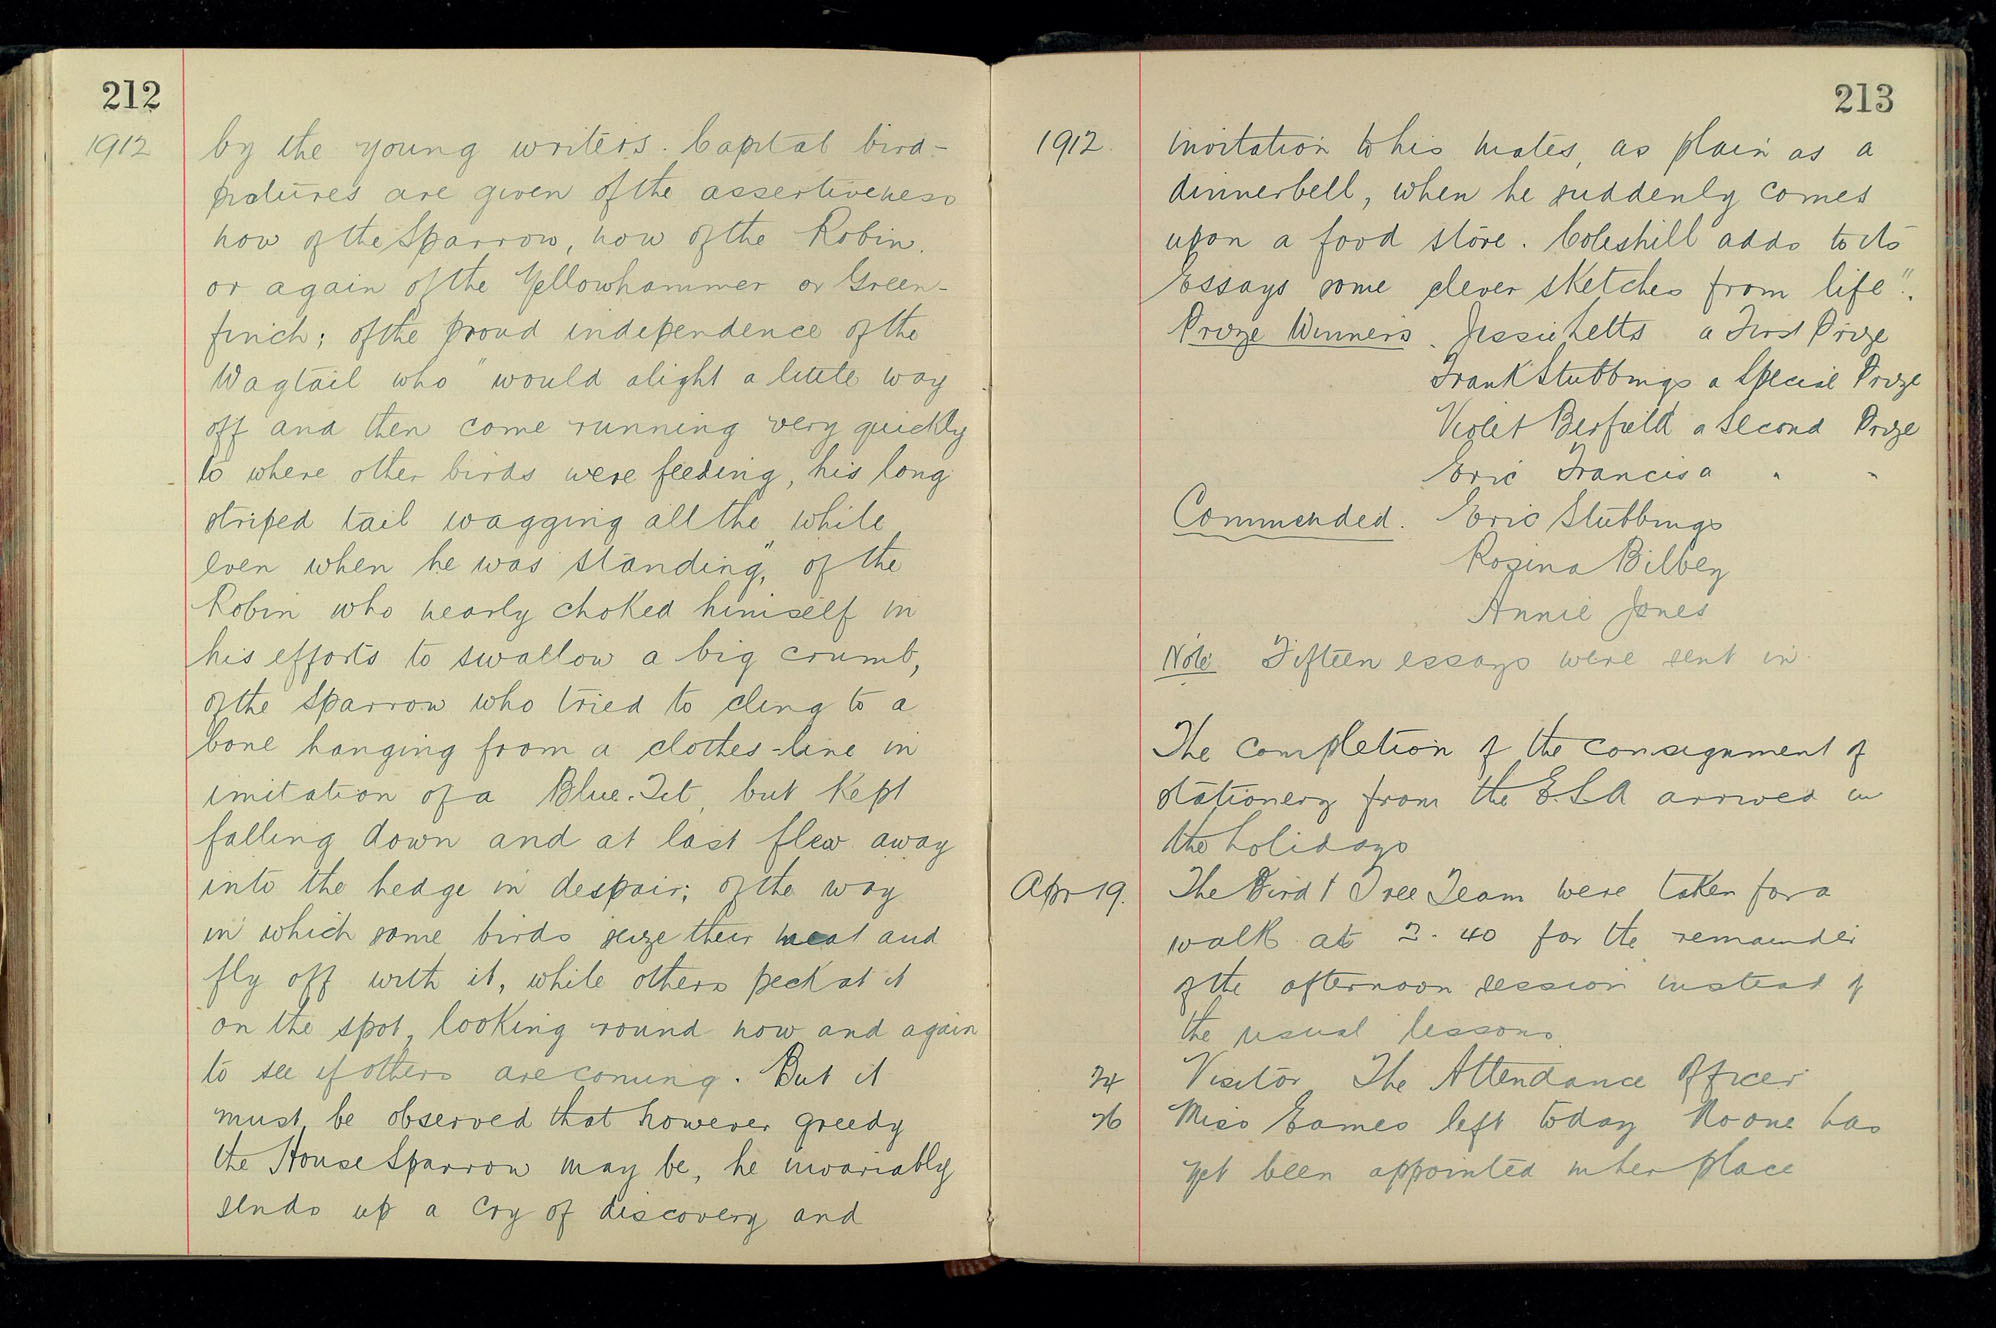 212
1912
by the young writers. Capital bird-
pictures are given of the assertiveness
now of the Sparrow, now of the Robin.
or again of the Yellowhammer or Green-
finch; of the proud independence of the
Wagtail who "would alight a little way
off and then come running very quickly
to where other birds were feeding, his long
striped tail wagging all the while
even when he was standing", of the
Robin who nearly choked himself in
his efforts to swallow a big crumb,
of the Sparrow who tried to cling to a
bone hanging from a clothes-line in
imitation of a Blue-Tit, but kept
falling down and at last flew away
into the hedge in despair; of the way
in which some birds seize their meat and
fly off with it, while others peck at it
on the spot, looking round now and again
to see if others are coming. But it
must be observed that however greedy
the House Sparrow may be, he invariably
sends up a cry of discovery and
213
1912.
invitation to his mates, as plain as a
dinnerbell, when he suddenly comes
upon a food store. Coleshill adds to its
Essays some clever sketches from life".
Prize Winners. Jessie Letts a First Prize
Frank Stubbings a Special Prize
Violet Berfield a Second Prize
Eric Francis a " "
Commended. Eric Stubbings
Rosina Bilbey
Annie Jones
Note Fifteen essays were sent in.
The completion of the consignment of
stationery from the E.S.A arrived in
the holidays
Apr 19. The Bird & Tree Team were taken for a
walk at 2.40 for the remainder
of the afternoon session instead of
the usual lessons.
24 Visitor The Attendance Officer
26 Miss Eames left today No one has
yet been appointed in her place